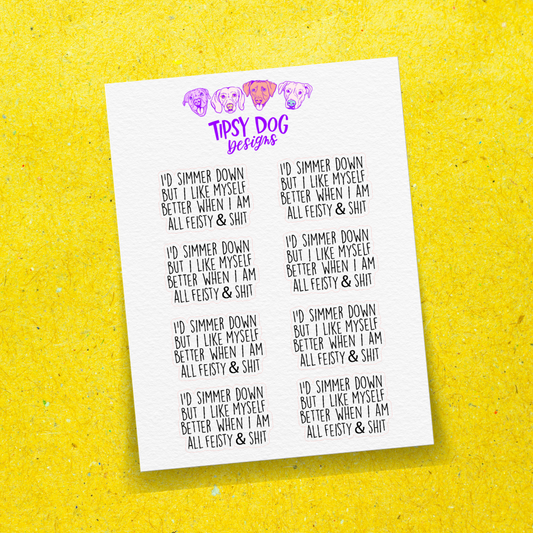 TIPSY DOG
Designs
I'D SIMMER DOWN
BUT I LIKE MYSELF
BETTER WHEN I AM
ALL FEISTY & SHIT
I'D SIMMER DOWN
BUT I LIKE MYSELF
BETTER WHEN I AM
ALL FEISTY & SHIT
I'D SIMMER DOWN
BUT I LIKE MYSELF
BETTER WHEN I AM
ALL FEISTY & SHIT
I'D SIMMER DOWN
BUT I LIKE MYSELF
BETTER WHEN I AM
ALL FEISTY & SHIT
I'D SIMMER DOWN
BUT I LIKE MYSELF
BETTER WHEN I AM
ALL FEISTY & SHIT
I'D SIMMER DOWN
BUT I LIKE MYSELF
BETTER WHEN I AM
ALL FEISTY & SHIT
I'D SIMMER DOWN
BUT I LIKE MYSELF
BETTER WHEN I AM
ALL FEISTY & SHIT
I'D SIMMER DOWN
BUT I LIKE MYSELF
BETTER WHEN I AM
ALL FEISTY & SHIT